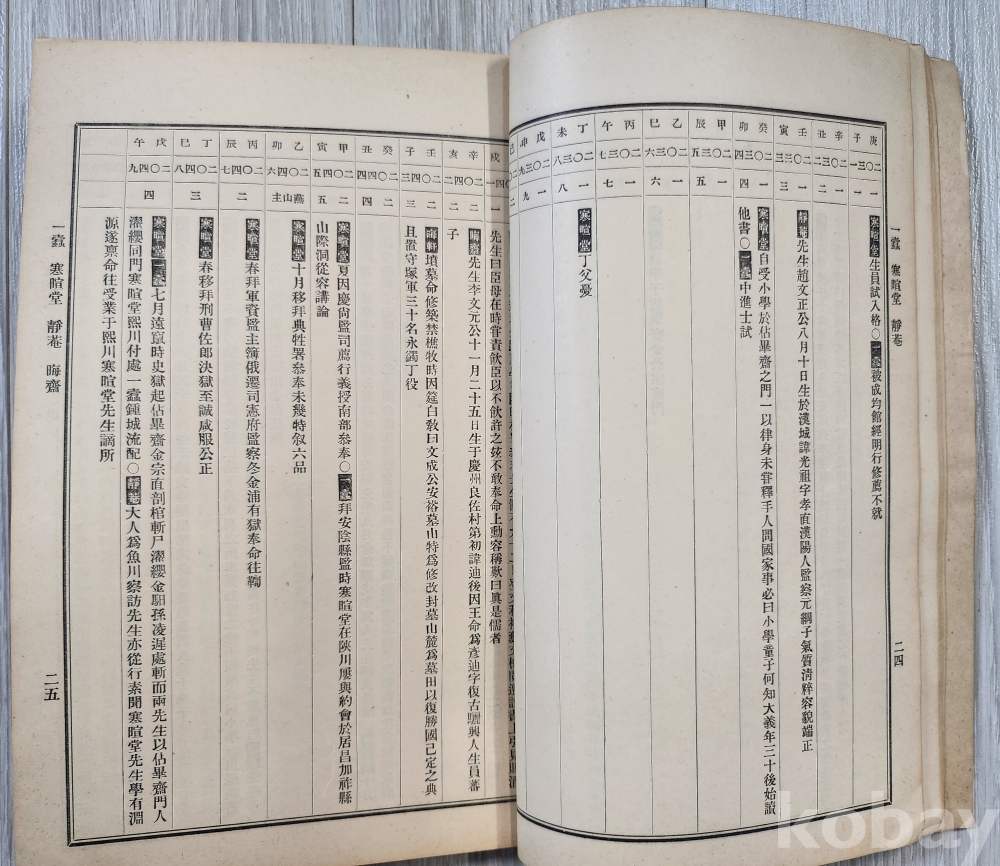 一蠹 寒暄堂 靜菴
二四
庚子
二〇三一
一一
寒暄堂生員試入格〇一蠹被成均館經明行修薦不就
辛丑
二〇三二
一二
壬寅
二〇三三
一三
靜菴先生趙文正公八月十日生於漢城諱光祖字孝直漢陽人監察元綱子氣質淸粹容貌端正
癸卯
二〇三四
一四
寒暄堂自受小學於佔畢齋之門一以律身未甞釋手人問國家事必曰小學童子何知大義年三十後始讀
他書〇一蠹中進士試
甲辰
二〇三五
一五
乙巳
二〇三六
一六
丙午
二〇三七
一七
丁未
二〇三八
一八
寒暄堂丁父憂
戊申
二〇三九
一九
先生曰臣母在時甞責飮臣以不飮許之玆不敢奉命上動容稱歎曰眞是儒者
辛亥
二〇四二
二二
晦齋先生李文元公十一月二十五日生于慶州良佐村第初諱迪後因王命爲彥迪字復古驪興人生員蕃
子
壬子
二〇四三
二三
晦軒墳墓命修築禁樵牧時因筵白敎曰文成公安裕墓山特爲修改封墓山麓爲墓田以復勝國己定之典
且置守塚軍三十名永蠲丁役
癸丑
二〇四四
二四
甲寅
二〇四五
二五
寒暄堂夏因慶尙監司薦行義授南部叅奉〇一蠹拜安陰縣監時寒暄堂在陜川屢與約會於居昌加祚縣
山際洞從容講論
乙卯
二〇四六
燕山主
寒暄堂十月移拜典牲署叅奉未幾特叙六品
丙辰
二〇四七
二
寒暄堂春拜軍資監主簿俄遷司憲府監察冬金浦有獄奉命往鞫
丁巳
二〇四八
三
寒暄堂春移拜刑曹佐郞決獄至誠咸服公正
戊午
二〇四九
四
寒暄堂一蠹七月遠竄時史獄起佔畢齋金宗直剖棺斬尸濯纓金馹孫凌遲處斬而兩先生以佔畢齋門人
濯纓同門寒暄堂熙川付處一蠹鍾城流配〇靜菴大人爲魚川察訪先生亦從行素聞寒暄堂先生學有淵
源遂稟命往受業于熙川寒暄堂先生謫所
一蠹 寒暄堂 靜菴 晦齋
二五
kobay